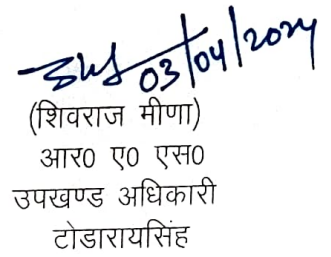 03/04/2024
(शिवराज मीणा)
आर० ए० एस०
उपखण्ड अधिकारी
टोडारायसिंह